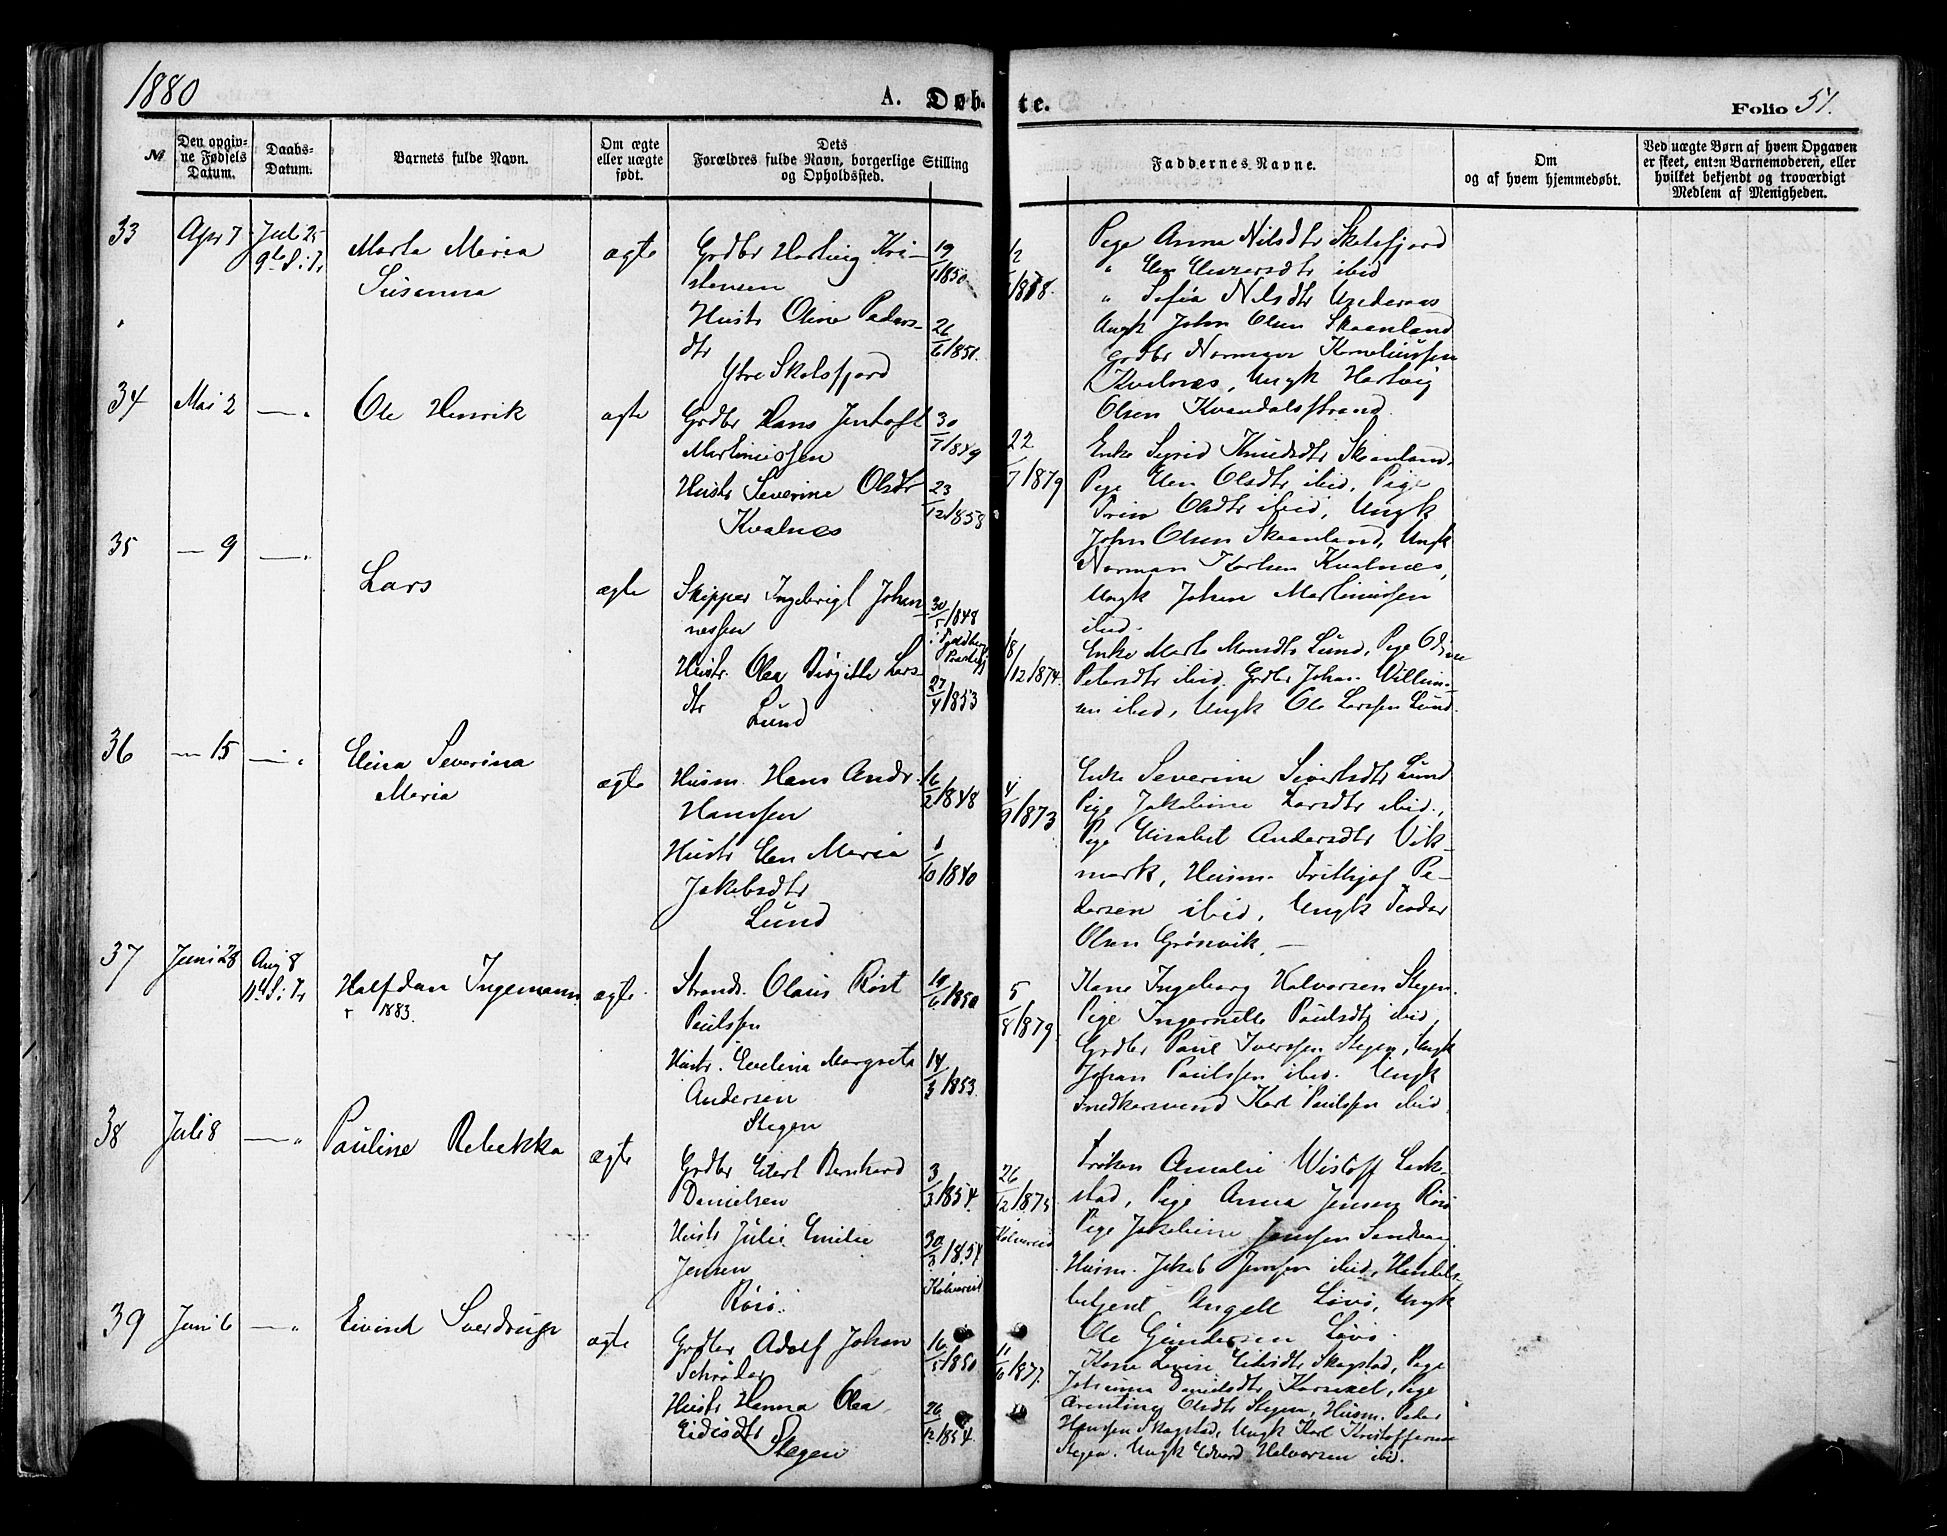 1880
A. Døbte.
Folio 51.
№
Den opgivne Fødsels Datum.
Daabs-Datum.
Barnets fulde Navn.
Om ægte eller uægte født.
Dets Forældres fulde Navn, borgerlige Stilling og Opholdssted.
Faddernes Navne.
Om og af hvem hjemmedøbt.
Ved uægte Børn af hvem Opgaven er skeet, enten Barnemoderen, eller hvilket bekjendt og troværdigt Medlem af Menigheden.
33
Apr 7
Jul 25
Marta Maria
Susanna
ægte
Grdbr Hartvig Kri-
stensen
19/1 1850
Hustr Oline Peders-
dtr
26/6 1851.
Ytre Skotsfjord
Pige Anna Nilsdtr Skotsfjord
" Elen ibid
" Sofia Nilsdtr
Ungk John Olsen Skaanland
Grdbr Norman Korneliussen
Kvalnes, Ungk Hartvig
Olsen Kvandalsstrand.
34
Mai 2
— "
Ole Henrik
ægte
Grdbr Hans Jentoft
Martinussen
30/7 1849
Hustr Severine Olsdtr
23/12 1858
Kvalnes
22/7 1879
Enke Sigrid Knudsdtr Skaanland.
Pige Elen Olsdtr ibid, Pige
Trine Olsdtr ibid, Ungk
John Olsen Skaanland, Ungk
Norman Karlsen Kvalnes,
Ungk Johan Martinussen
ibid.
35
— 9
— "
Lars
ægte
Skipper Ingebrigt Johan
nessen
30/5 1848
Hustr. Olea Birgitte Lars-
dtr
27/4 1853
Lund
18/12 1874.
Enke Marta Monsdtr Lund, Pige
Petersdtr ibid. Grdbr Johan Willum-
sen ibid, Ungk Ole Larssen Lund.
36
— 15
— "
Elina Severina
Maria
ægte
Husm. Hans Andr.
Hanssen
16/2 1848
Hustr Elen Maria
Jakobsdtr
1/10 1840
Lund
4/9 1873
Enke Severine Sivertsdtr Lund
Pige Jakobine Larsdtr ibid.,
Pige Elisabet Andersdtr Vik-
mark, Husm. Frithjof Pe-
dersen ibid, Ungk Teodor
Olsen Grønvik, —
37
Juni 28
Aug 8
Halfdan Ingemann
r 1883.
ægte
Strands. Olaus Røst
Paulssen
10/6 1850
Hustr. Evelina Margrete
Andersen
14/3 1853.
Stegen
5/8 1879.
Kone Ingeborg Halvorsen Stegen.
Pige Paulsdtr ibid,
Grdbr Paul Iverssen Stegen, Ungk
Johan Paulssen ibid. Ungk
Snedkersvend Karl Paulssen ibid.
38
Juli 8
— "
Pauline Rebekka
ægte
Grdbr Eilert Bernhard
Danielsen
3/3 1854.
Hustr Julie Emilie
Jensen
30/3 1854
Kolvereid
Røsø.
26/12 1875
Kolvereid
Frøken Amalie Wisloff Lark-
stad, Pige Anna Jensen Røsø
Pige Jakobine Jenssen Sandvaag.
Husm. Jakob Jenssen ibid, Handels-
betjent Angell Løvø, Ungk
Ole Gundersen Løvø.
39
Juni 6
— "
Eivind Sverdrup
ægte
Grdbr Adolf Johan
Schrøder
16/5 1850
Hustr Hanna Olea
Eidisdtr
26/12 1854.
Stegen
11/6 1877.
Kone Lovise Skagstad, Pige
Johanna Danielsdtr Pige
Arentine Olsdtr Stegen, Husm. Peder
Hanssen Skagstad, Ungk Karl Kristoffersen
Stegen. Ungk Edvard Halvorsen ibid.